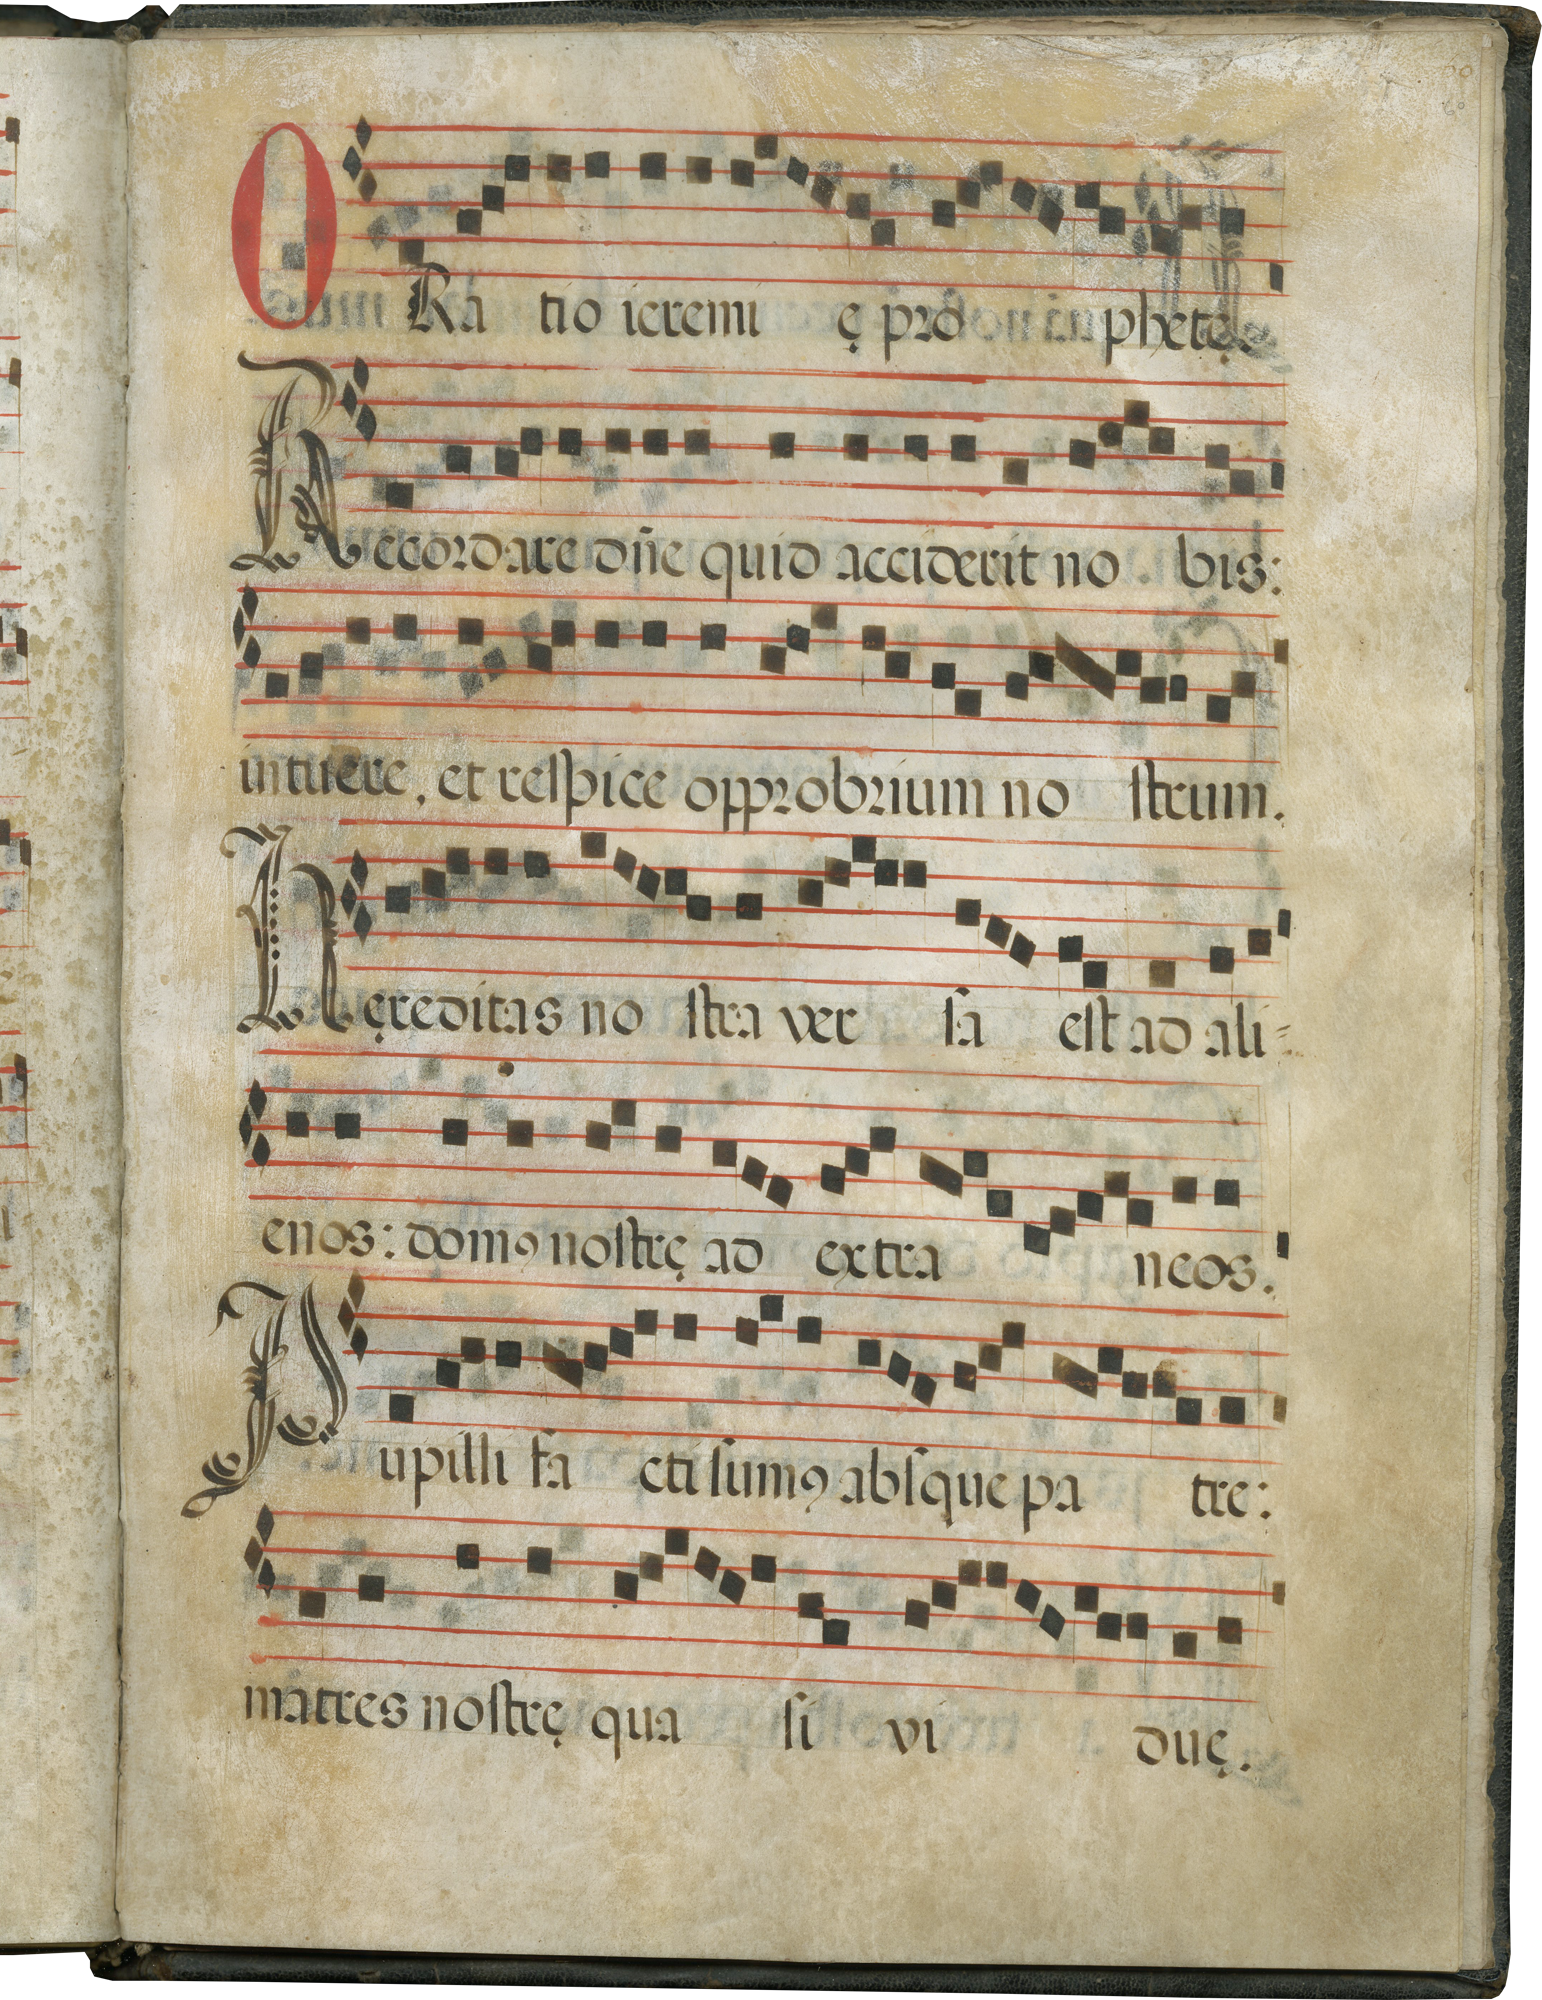 ORa tio ieremi ę pro phetę.
Recordare dn̄e quid acciderit no bis:
intuere, et respice opprobrium no strum.
Hęreditas no stra ver sa est ad ali=
enos: domꝰ nostrę ad extra neos.
Pupilli fa cti sumꝰ absque pa tre:
matres nostrę qua si vi duę.